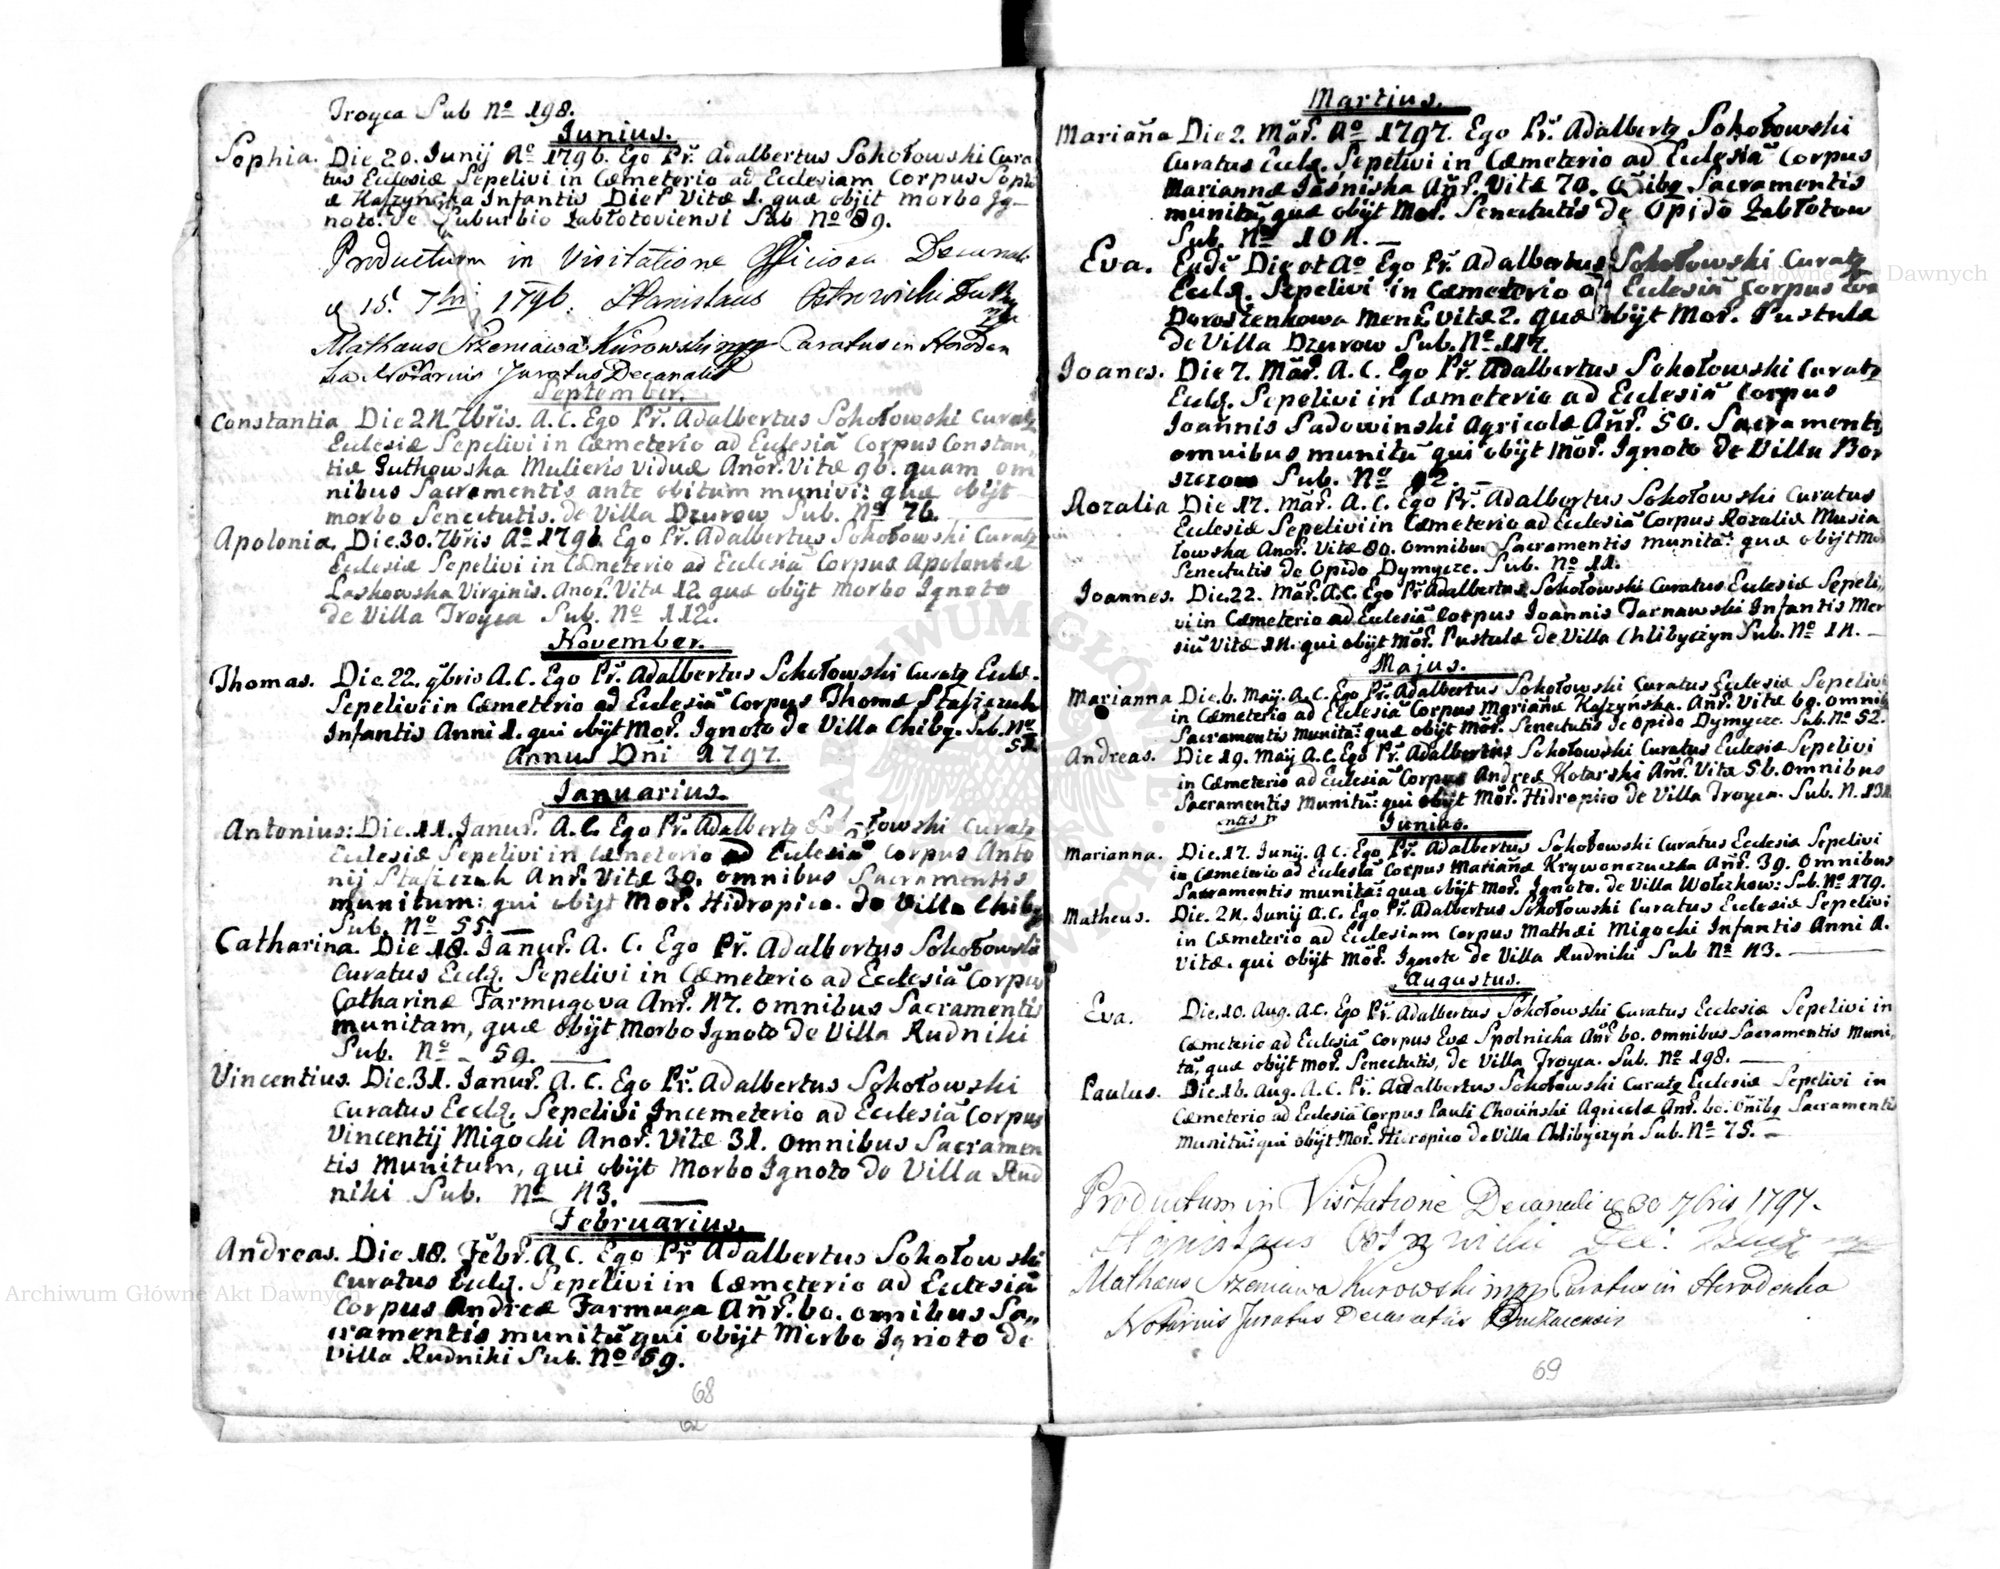 Troyca Sub No 198.
Junius.
Sophia. Die 20. Junij Ao 1796. Ego Pr. Adalbertus Sokołowski Cura
tus Eclesiæ Sepelivi in Cæmeterio ad Eclesiam Corpus Sophi
æ Kaszyńska Infantis Dier Vitæ 1. quæ objit morbo Ig-
noto. de Suburbio Zabłotoviensi Sub No 89.
Productum in Visitatione Officiosa Decanali
d 15. 7bri 1796. Stanislaus Ostrowicki
Mathæus Srzeniawa Kurowski mpp Curatus in Horoden
ka Notarius Juratus Decanalis
September.
Constantia Die 24. 7bris. A.C. Ego Pr. Adalbertus Sokołowski Curatq
Eclesiæ Sepelivi in Cæmeterio ad Eclesiã Corpus Constan,,
tiæ Gutkowska Mulieris Viduæ Anor. Vitæ 96. quam om
nibus Sacramentis ante obitum munivi: quæ obijt
morbo Senectutis. de Villa Dzurow Sub. No 76.
Apolonia. Die.30. 7bris Ao 1796 Ego Pr. Adalbertus Sokołowski Curatq
Eclesiæ Sepelivi in Cæmeterio ad Eclesiã Corpus Apoloniæ
Laskowska Virginis. Anor. Vitæ 12 quæ obijt Morbo Ignoto
de Villa Troyca Sub. No 112.
November.
Thomas. Die.22. 9bris A.C. Ego Pr. Adalbertus Sokołowski Curatq Ecles.
Sepelivi in Cæmeterio ad Eclesiã Corpus Thomæ Staszczuk
Infantis Anni 1. qui obijt Mor. Ignoto de Villa Chliby. Sub. No
51.
Annus Dni 1797.
Januarius.
Antonius: Die.11. Janur. A.C. Ego Pr. Adalbertq Sokołowski Curatq
Eclesiæ Sepelivi in Cæmeterio ad Eclesiã Corpus Anto
nij Staszczuk Anr. Vitæ 30. omnibus Sacramentis
munitum: qui obijt Mor. Hidropico. de Villa Chliby
Sub. No 55. —
Catharina. Die 18. Janur. A. C. Ego Pr. Adalbertus Sokołowski
Curatus Eclq. Sepelivi in Cæmeterio ad Eclesiã Corpus
Catharinæ Farmugova Anr. 47. omnibus Sacramentis
munitam, quæ obijt Morbo Ignoto de Villa Rudniki
Sub. No - 59. —
Vincentius. Die.31. Janur. A. C. Ego Pr. Adalbertus Sokołowski
Curatus Ecclq. Sepelivi Incemeterio ad Eclesiã Corpus
Vincentij Migocki Anor. Vitæ 31. omnibus Sacramen
tis Munitum, qui obijt Morbo Ignoto de Villa Rud
niki Sub. No 43. —
Februarius.
Andreas. Die.18. Febr. A C. Ego Pr Adalbertus Sokołowski
Curatus Eclq. Sepelivi in Cæmeterio ad Eclesiã
Corpus Andreæ Farmuga Anr. 60. omnibus Sa,,
cramentis munitũ qui obijt Morbo Ignoto de
Villa Rudniki Sub. No 59.
68
62
Martius.
Marianna Die 2. Mar. Ao 1797. Ego Pr. Adalbertq Sokołowski
Curatus Eclq. Sepelivi in Cæmeterio ad Eclesiã Corpus
Mariannæ Jaśniska Anr. Vitæ 70. Oĩbq Sacramentis
munitã, quæ obijt Mor. Senectutis de Opido Zabłotow
Sub. No 104. —
Eva. Eadẽ Die et Ao Ego Pr. Adalbertus Sokołowski Curatq
Eclq. Sepelivi in Cæmeterio ad Eclesiã Corpus Evæ
Doroszenkowa Mens. Vitæ 2. quæ obijt Mor. Pustulæ
de Villa Dzurow Sub. No.117.
Joanes. Die 7. Mar. A. C. Ego Pr. Adalbertus Sokołowski Curatq
Eclq. Sepelivi in Cæmeterio ad Eclesiã Corpus
Joannis Sadowinski Agricolæ Anr. 50. Sacramentis
omnibus munitũ qui obijt Mor. Ignoto de Villa Bor
szczow Sub. No 12. —
Rozalia Die 17. Mar. A. C. Ego Pr. Adalbertus Sokołowski Curatus
Eclesiæ Sepelivi in Cæmeterio ad Eclesiã Corpus Rozaliæ Musia
łowska Anor. Vitæ 80. omnibus Sacramentis munitã: quæ obijt Mor
Senectutis de Opido Dymycze. Sub. No 11.
Joannes. Die.22. Mar. A.C. Ego Pr Adalbertus Sokołowski Curatus Eclesiæ Sepeli,,
vi in Cæmeterio ad Eclesiã Corpus Joannis Tarnawski Infantis Men
siũ Vitæ 14. qui obijt Mor. Pustulæ de Villa Chlibyczyn Sub. No 14. —
Majus.
Marianna Die.6. Maij. A.C. Ego Pr. Adalbertus Sokołowski Curatus Eclesiæ Sepelivi
in Cæmeterio ad Eclesiã Corpus Marianæ Kaszyńska. Anr. Vitæ 69. omnibq
Sacramentis Munitã: quæ obijt Mor. Senectutis de Opido Dymycze. Sub. No 52.
Andreas. Die 19. Maij A.C. Ego Pr. Adalbertus Sokołowski Curatus Eclesiæ Sepelivi
in Cæmeterio ad Eclesiã Corpus Andreæ Kotarski Anr. Vitæ 56. omnibus
Sacramentis Munitũ: qui obijt Mor. Hidropico de Villa Troyca. Sub. N. 131.
Junius.
Marianna. Die.17. Junij. A C. Ego Pr. Adalbertus Sokołowski Curatus Eclesiæ Sepelivi
in Cæmeterio ad Eclesiã Corpus Marianæ Krywonczuczka Anr. 39. omnibus
Sacramentis munitã: quæ obijt Mor. Ignoto. de Villa Wołczkow: Sub. No 179.
Matheus. Die. 24. Junij A.C. Ego Pr. Adalbertus Sokołowski Curatus Eclesiæ Sepelivi
in Cæmeterio ad Ecclesiam Corpus Mathæi Migocki Infantis Anni 1.
Vitæ. qui obijt Mor. Ignoto de Villa Rudniki Sub No 43. —
Augustus.
Eva. Die.10. Aug. A.C. Ego Pr. Adalbertus Sokołowski Curatus Ecclesiæ Sepelivi in
Cæmeterio ad Eclesiã Corpus Evæ Spolnicka Anr 60. omnibus Sacramentis Muni,,
tã, quæ obijt Mor. Senectutis, de Villa Troyca. Sub. No 198. —
Paulus. Die.16. Aug. A.C. Pr. Adalbertus Sokołowski Curatq Eclesiæ Sepelivi in
Cæmeterio ad Eclesiã Corpus Pauli Chociński Agricolæ Anr. 60. Onibq Sacramentis
munitũ: qui obijt Mor. Hidropico de Villa Chlibyczyn Sub. No 75. —
Productum in Visitatione Decanali d 30 7bris 1797.
Stanislaus Ostrowicki Dec:
Mathæus Srzeniawa Kurowski mpp Curatus in Horodenka
Notarius Juratus Decanalis
69
Archiwum Główne Akt Dawnych
Archiwum Główne Akt Dawnych